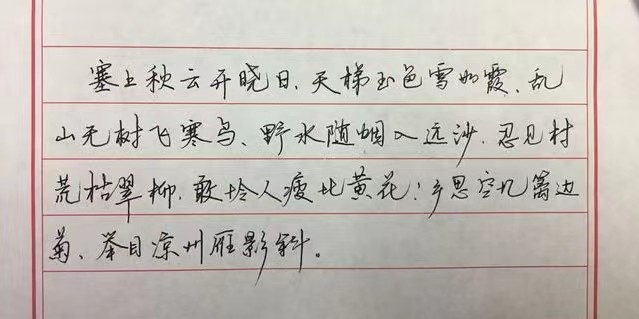 塞上秋云开晓日、天梯玉色雪如霞、乱
山无树飞寒鸟、野水随烟入远沙、忍见村
荒枯翠柳、敢怜人瘦比黄花！乡思空忆篱边
菊、举目凉州雁影斜。